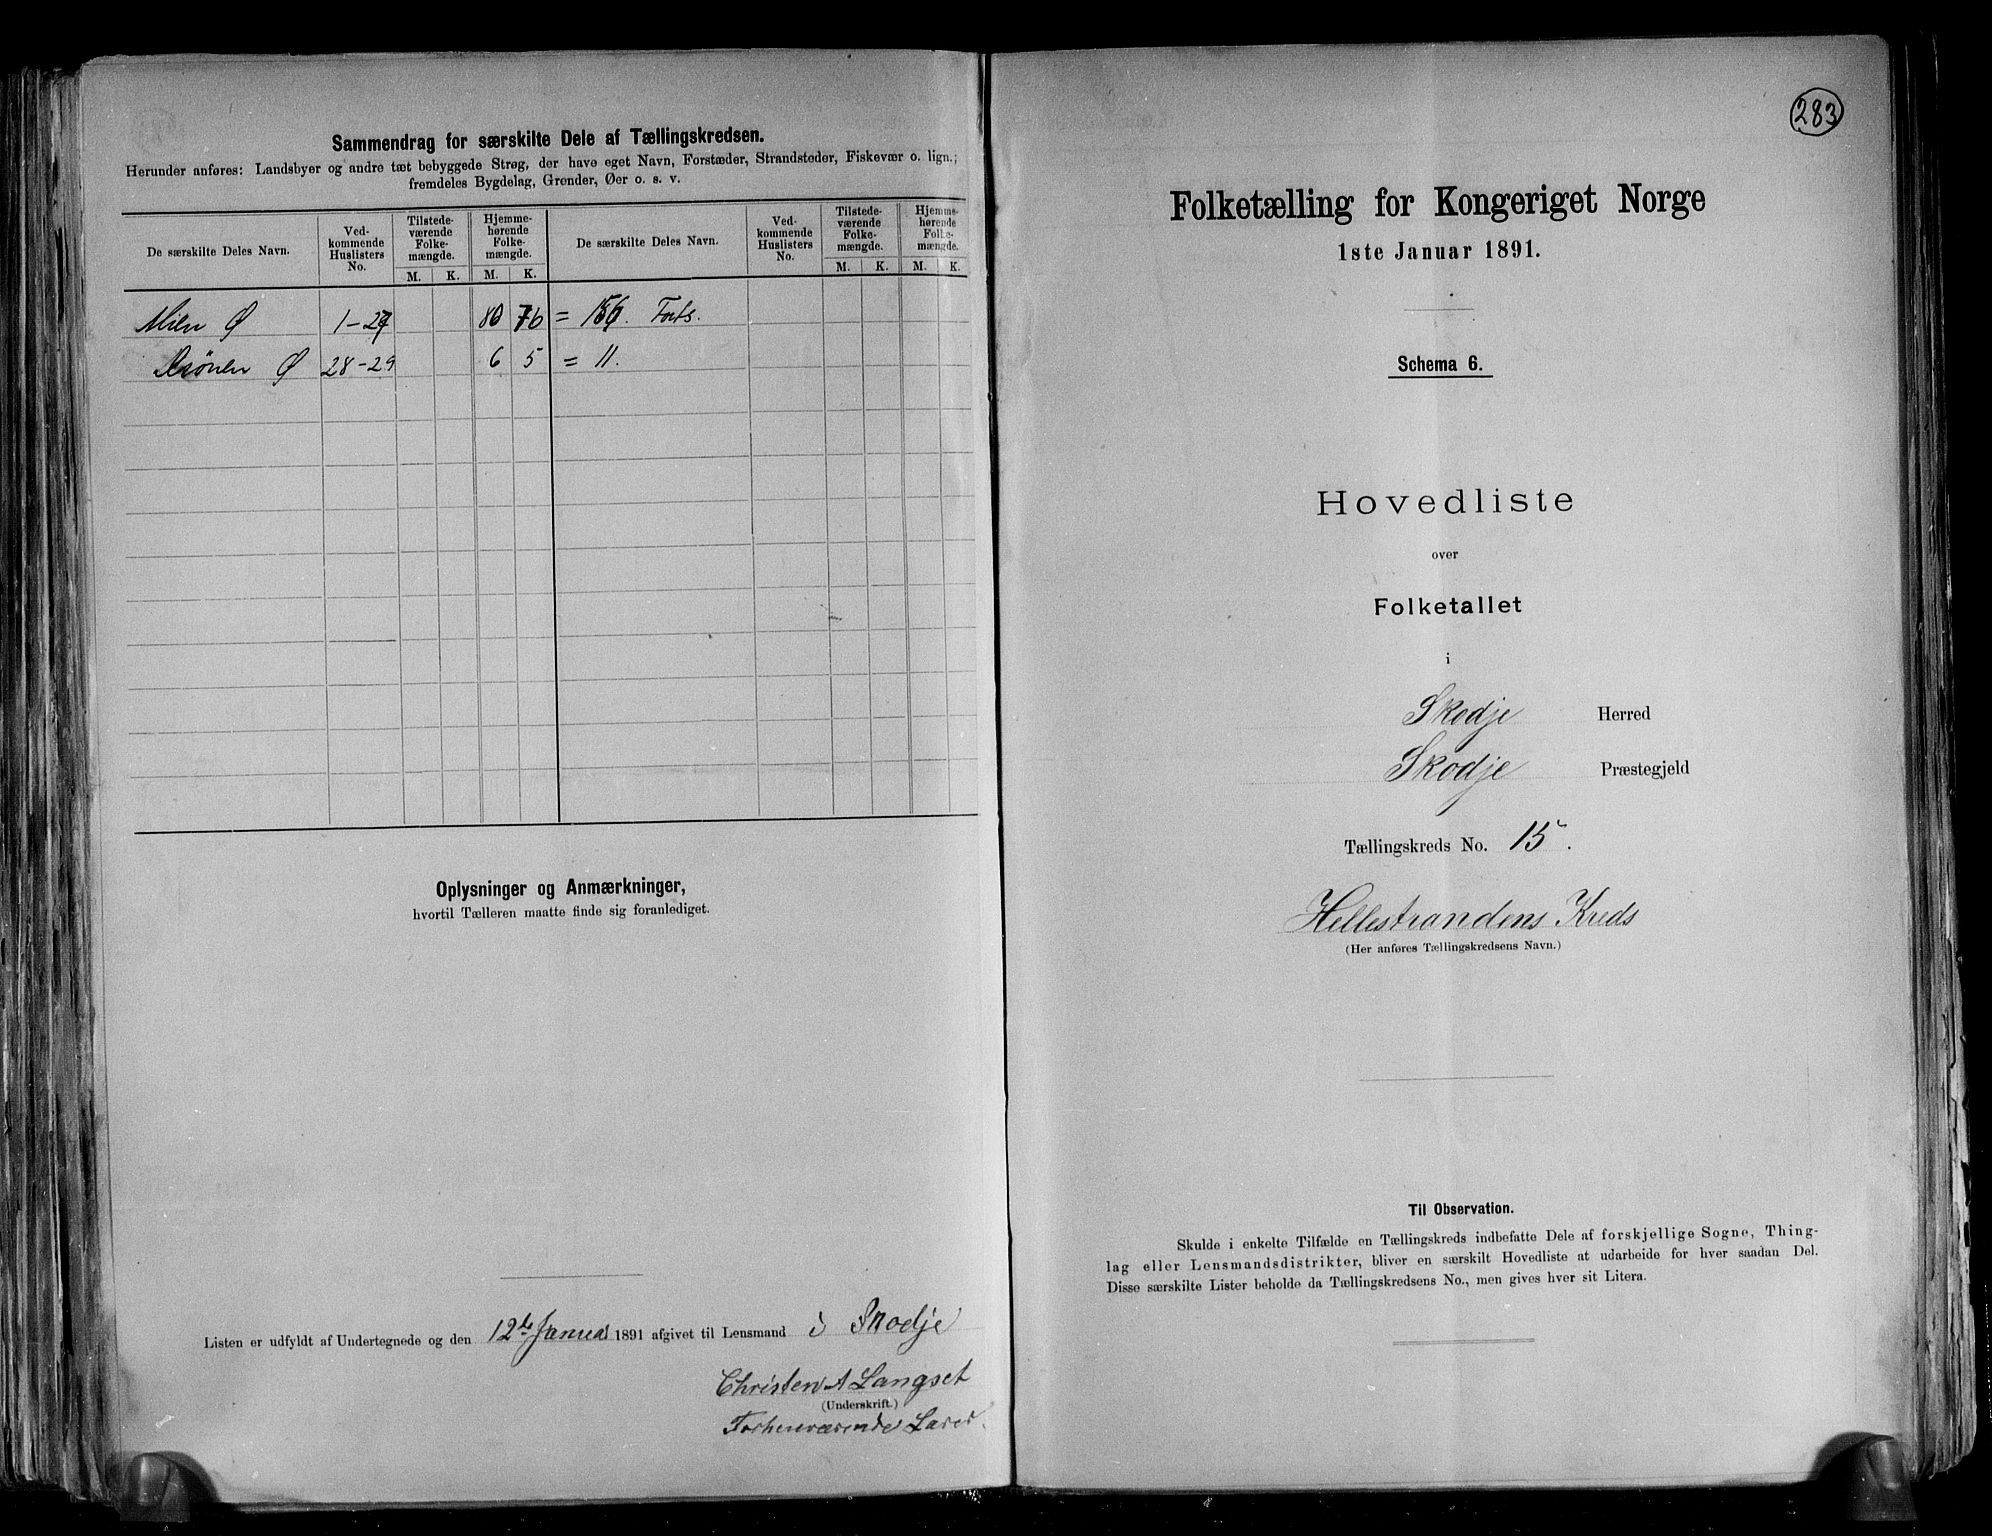 Sammendrag for særskilte Dele af Tællingskredsen.
Herunder anføres: Landsbyer og andre tæt bebyggede Strøg, der have eget Navn, Forstæder, Strandsteder, Fiskevær o. lign.;
fremdeles Bygdelag, Grender, Øer o. s. v.
De særskilte Deles Navn. Ved-kommende Huslisters No. Tilstede-værende Folke-mængde. Hjemme-hørende Folke-mængde. De særskilte Deles Navn. Ved-kommende Huslisters No. Tilstede-værende Folke-mængde. Hjemme-hørende Folke-mængde.
M. K. M. K. M. K. M. K.
Mien Ø 1-27 80 76 = 156.
Ø 28-29 6 5 = 11.
Oplysninger og Anmærkninger,
hvortil Tælleren maatte finde sig foranlediget.
Listen er udfyldt af Undertegnede og den 12te Januar 1891 afgivet til Lensmand i Skodje
Christen A Langset
(Underskrift.)
Forhenværende Lærer.
283
Folketælling for Kongeriget Norge
1ste Januar 1891.
Schema 6.
Hovedliste
over
Folketallet
i
Skodje Herred
Skodje Præstegjeld
Tællingskreds No. 15.
Hellestrandens Kreds
(Her anføres Tællingskredsens Navn.)
Til Observation.
Skulde i enkelte Tilfælde en Tællingskreds indbefatte Dele af forskjellige Sogne, Thing-
lag eller Lensmandsdistrikter, bliver en særskilt Hovedliste at udarbeide for hver saadan Del.
Disse særskilte Lister beholde da Tællingskredsens No., men gives hver sit Litera.